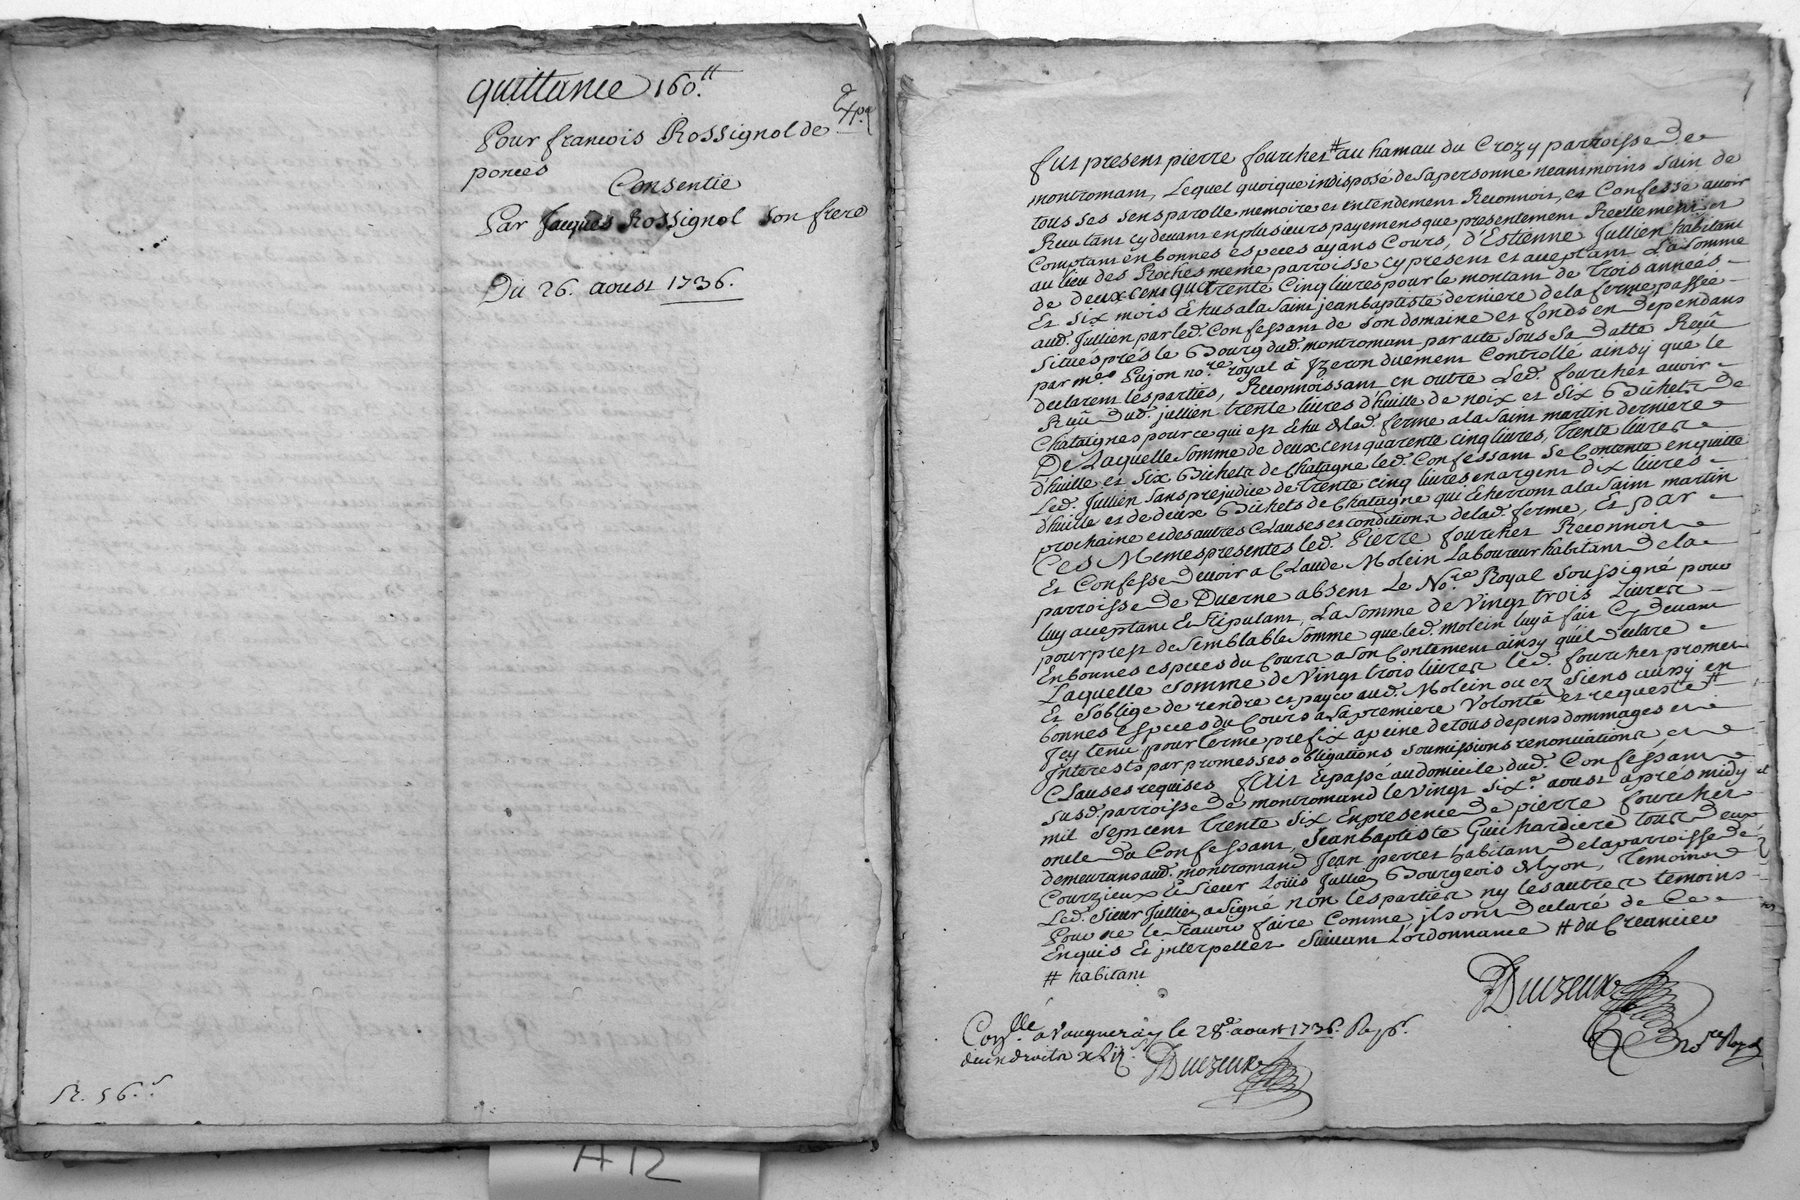 quittance 160.ᵗᵗ
Exp.ᵉ
Pour francois Rossignol de
ponces
Consentie
Par Jacques Rossignol son frere
Du 26. aoust 1736.
R. 56.ˢ
fut present pierre fourcher # au hamau du Crozy parroisse de
montromant, Lequel quoique indisposé de sa personne neantmoins sain de
tous ses sens parolle memoire et entendement Reconnoit, et Confesse avoir
Reçu tant cy devant en plusieurs payemens que presentement Reellement et
Comptant en bonnes especes ayans Cours, d'Estienne Jullien habitant
au lieu des Roches meme parroisse cy present et acceptant La somme
de deux cent quarente Cinq livres pour le montant de trois années
Et six mois Echus a la saint jean baptiste derniere de la ferme passée
aud. Jullien par led. Confessant de son domaine et fonds en dependans
situés prés le Bourg dud. montromant par acte sous sa datte Reçû
par me. Pujon no.ʳᵉ royal à Jzeron duement Controllé ainsy que le
declarent les parties, Reconnoissant en outre Led. fourcher avoir
Reçû dud. jullien trente livres d'huille de noix et six Bichets de
Chataignes pour ce qui est Echu de lad. ferme a la saint martin derniere
De Laquelle somme de deux cent quarente cinq livres, trente livres
d'huille et six Bichets de Chatagne led. Confessant se Contente en quitte
Led. Jullien sans prejudice de trente cinq livres en argent dix livres
d'huille et de deux Bichets de Chatagne qui Echerront a la saint martin
prochaine et des autres Clauses et conditions de lad. ferme, Et par
Ces Memes presentes led. Pierre fourcher Reconnoit
Et Confesse devoir a Claude Molein Laboureur habitant de la
parroisse de Duerne absent Le No.ʳᵉ Royal soussigné pour
luy acceptant Et stipulant, La somme de vingt trois Livres
pour prest de semblable somme que led. molein luy à fait Cy devant
En bonnes especes du Cours a son Contement ainsy qu'il declare
Laquelle somme de vingt trois livres led. fourcher promet
Et s'oblige de rendre et payer aud. Molein ou ez siens aussy en
bonnes especes du Cours a sa premiere volonté et requeste #
Jcy tenu pour terme prefix a peine de tous depens dommages et
Interests par promesses obligations soumissions renonciations et
Clauses requises fait Et passé au domicile dud. Confessant
susd. parroisse de montromand le vingt six.ᵉ aoust aprés midy
mil sept cent trente six En presence de pierre fourcher
oncle du Confessant, Jean baptiste Guichardiere tous deux
demeurans aud. montromand Jean perret habitant de la parroisse de
Courzieux & sieur Loüis Jullien Bourgeois de Lyon, Temoins
Led. sieur Jullien a signé non les parties ny les autres temoins
Pour ne le scavoir faire Comme jls ont declaré de Ce
Enquis Et jnterpellés suivant L'ordonnance # du Creancier
# habitant
Duizeux
no.ʳᵉ Royal
Con.ˡˡᵉ a Vaugneray le 28.ᵉ aoust 1736. R
Duizeux